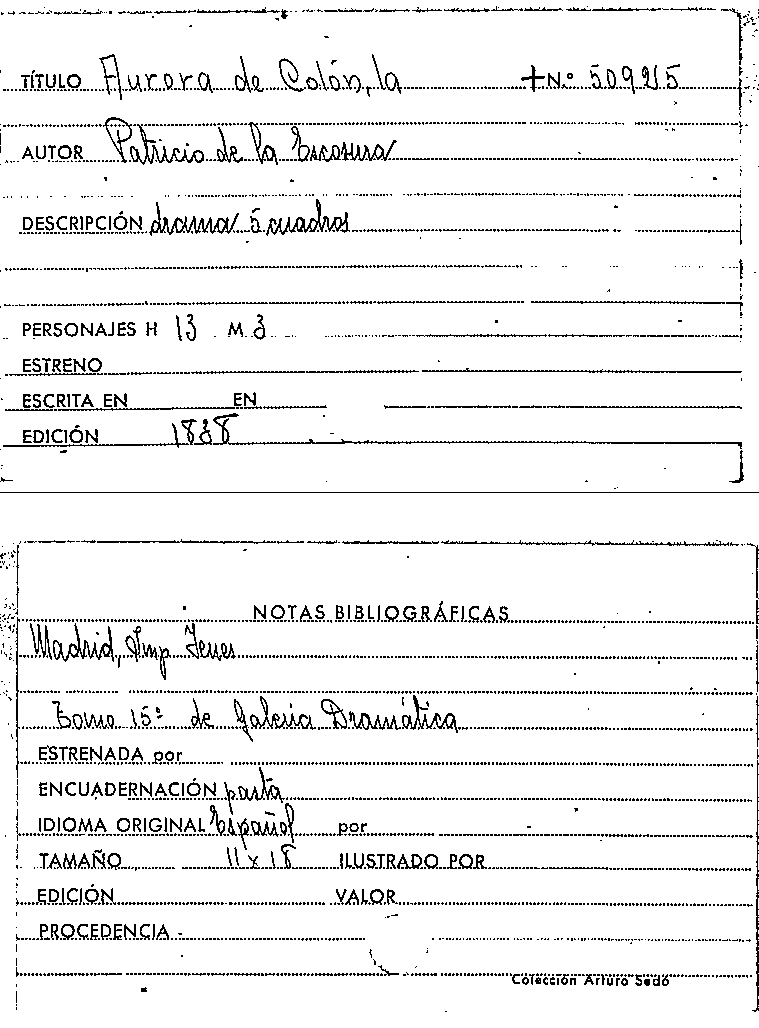 TÍTULO Aurora de Colón, la +N.º 509215
AUTOR Patricio de la Escosura
DESCRIPCIÓN drama 5 cuadros
PERSONAJES H 13 M. 3
ESTRENO
ESCRITA EN EN
EDICIÓN 1838
NOTAS BIBLIOGRÁFICAS
Madrid, Imp Yenes
Tomo 15º de Galeria Dramática
ESTRENADA por
ENCUADERNACIÓN pasta
IDIOMA ORIGINAL Español por
TAMAÑO 11 x 18 ILUSTRADO POR
EDICIÓN VALOR
PROCEDENCIA
Colección Arturo Sedó